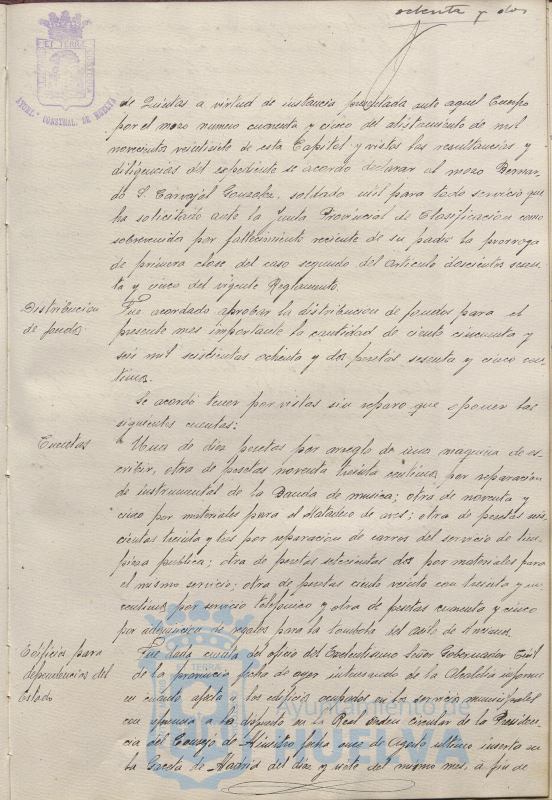 ochenta y dos
AYUNT.º CONSTNAL. DE HUELVA
de Quintas a virtud de instancia presentada ante aquel Cuerpo
por el mozo numero cuarenta y cinco del alistamiento de mil
novecientos veintisiete de esta Capital y vistas las resultancias y
diligencias del expediente se acordo declarar al mozo Bernar-
do S. Carvajal Gonzalez, soldado util para todo servicio que
ha solicitado ante la Junta Provincial de Clasificacion como
sobrevenida por fallecimiento reciente de su padre la prorroga
de primera clase del caso segundo del articulo doscientos sesen-
ta y cinco del vigente Reglamento.
Distribucion
de fondos
Fue acordado aprobar la distribucion de fondos para el
presente mes importante la cantidad de ciento cincuenta y
seis mil seiscientas ochenta y dos pesetas sesenta y cinco cen-
timos.
Se acordó tener por vistas sin reparo que oponer las
siguientes cuentas:
Cuentas
Una de diez pesetas por arreglo de una maquina de es-
cribir, otra de pesetas noventa treinta centimos por reparacion
de instrumental de la Banda de musica; otra de noventa y
cinco por materiales para el Matadero de aves; otra de pesetas seis-
cientas treinta y tres por reparacion de carros del servicio de lim-
pieza publica; otra de pesetas setecientas dos por materiales para
el mismo servicio; otra de pesetas ciento veinte con treinta y
centimos por servicio telefonico y otra de pesetas cuarenta y cinco
por adquisicion de regalos para la tombola del asilo de ancianos.
Edificios para
dependencias del
Estado
Fue dada cuenta del oficio del Excelentisimo Señor Gobernador Civil
de la provincia fecha de ayer interesando de la Alcaldia informe
en cuanto afecta a los edificios ocupados en los servicios municipales
con a lo dispuesto en la Real Orden circular de la Presiden-
cia del Consejo de Ministros fecha once de Agosto ultimo inserta en
la Gaceta de Madrid del diez y siete del mismo mes, a fin de
Ayuntamiento de
HUELVA